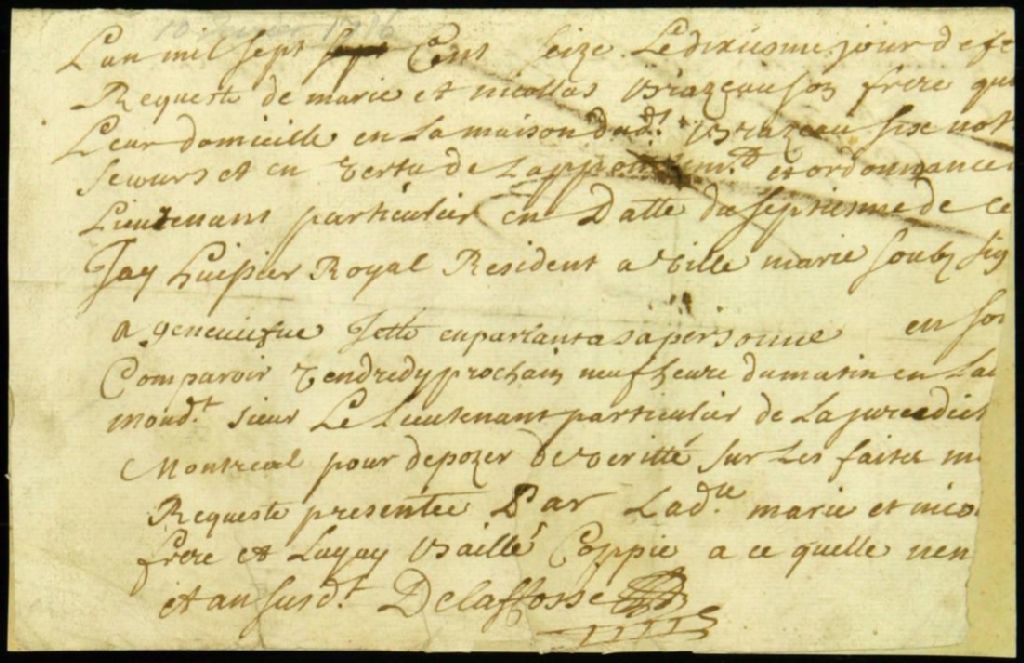 L'an mil sept sept Cent seize Le dixiesme jour de fe
Requeste de marie et nicollas Brazeau son frere qu
Leur domicille en La maison dud.t Brazeau size not
sewurs et en vertu de Lappointem.t et ordonnance
Lieutenant particulier en Datte du septiesme de ce
Jay huissier Royal Resident a ville marie soubz sig
a geneuiefue Jette en parlant a sa personne en son
Comparoir vendredy prochain neuf heure du matin en La
mond.t sieur Le Lieutenant particulier de La juredict
Montreal pour depozer de veritté sur Les faites m
Requeste presentée Par Lad.te marie et nico
frere et Luy ay Baillé Coppie a ce quelle nen
et an susd.t Delaffosse